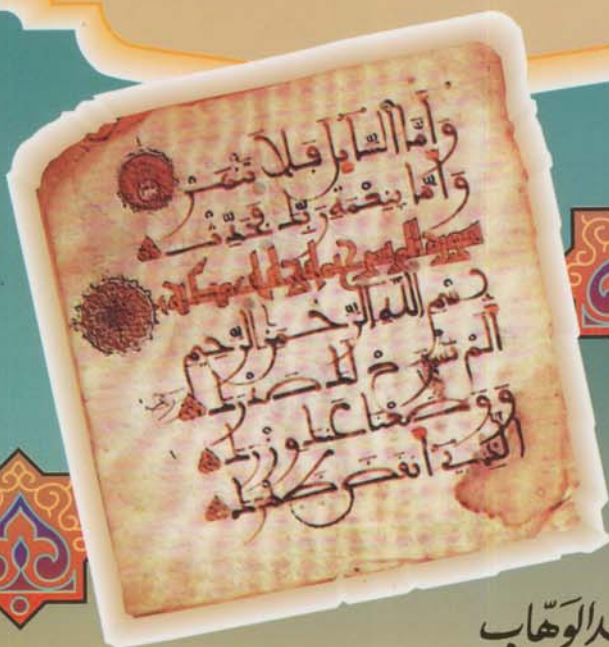 وَأَمَّا ٱلسَّآئِلَ فَلَا تَنْهَرْ
وَأَمَّا بِنِعْمَةِ رَبِّكَ فَحَدِّثْ
بِسْمِ اللَّهِ الرَّحْمَٰنِ الرَّحِيمِ
أَلَمْ نَشْرَحْ لَكَ صَدْرَكَ
وَوَضَعْنَا عَنكَ وِزْرَكَ
ٱلَّذِي أَنقَضَ ظَهْرَكَ
دالوَهّاب